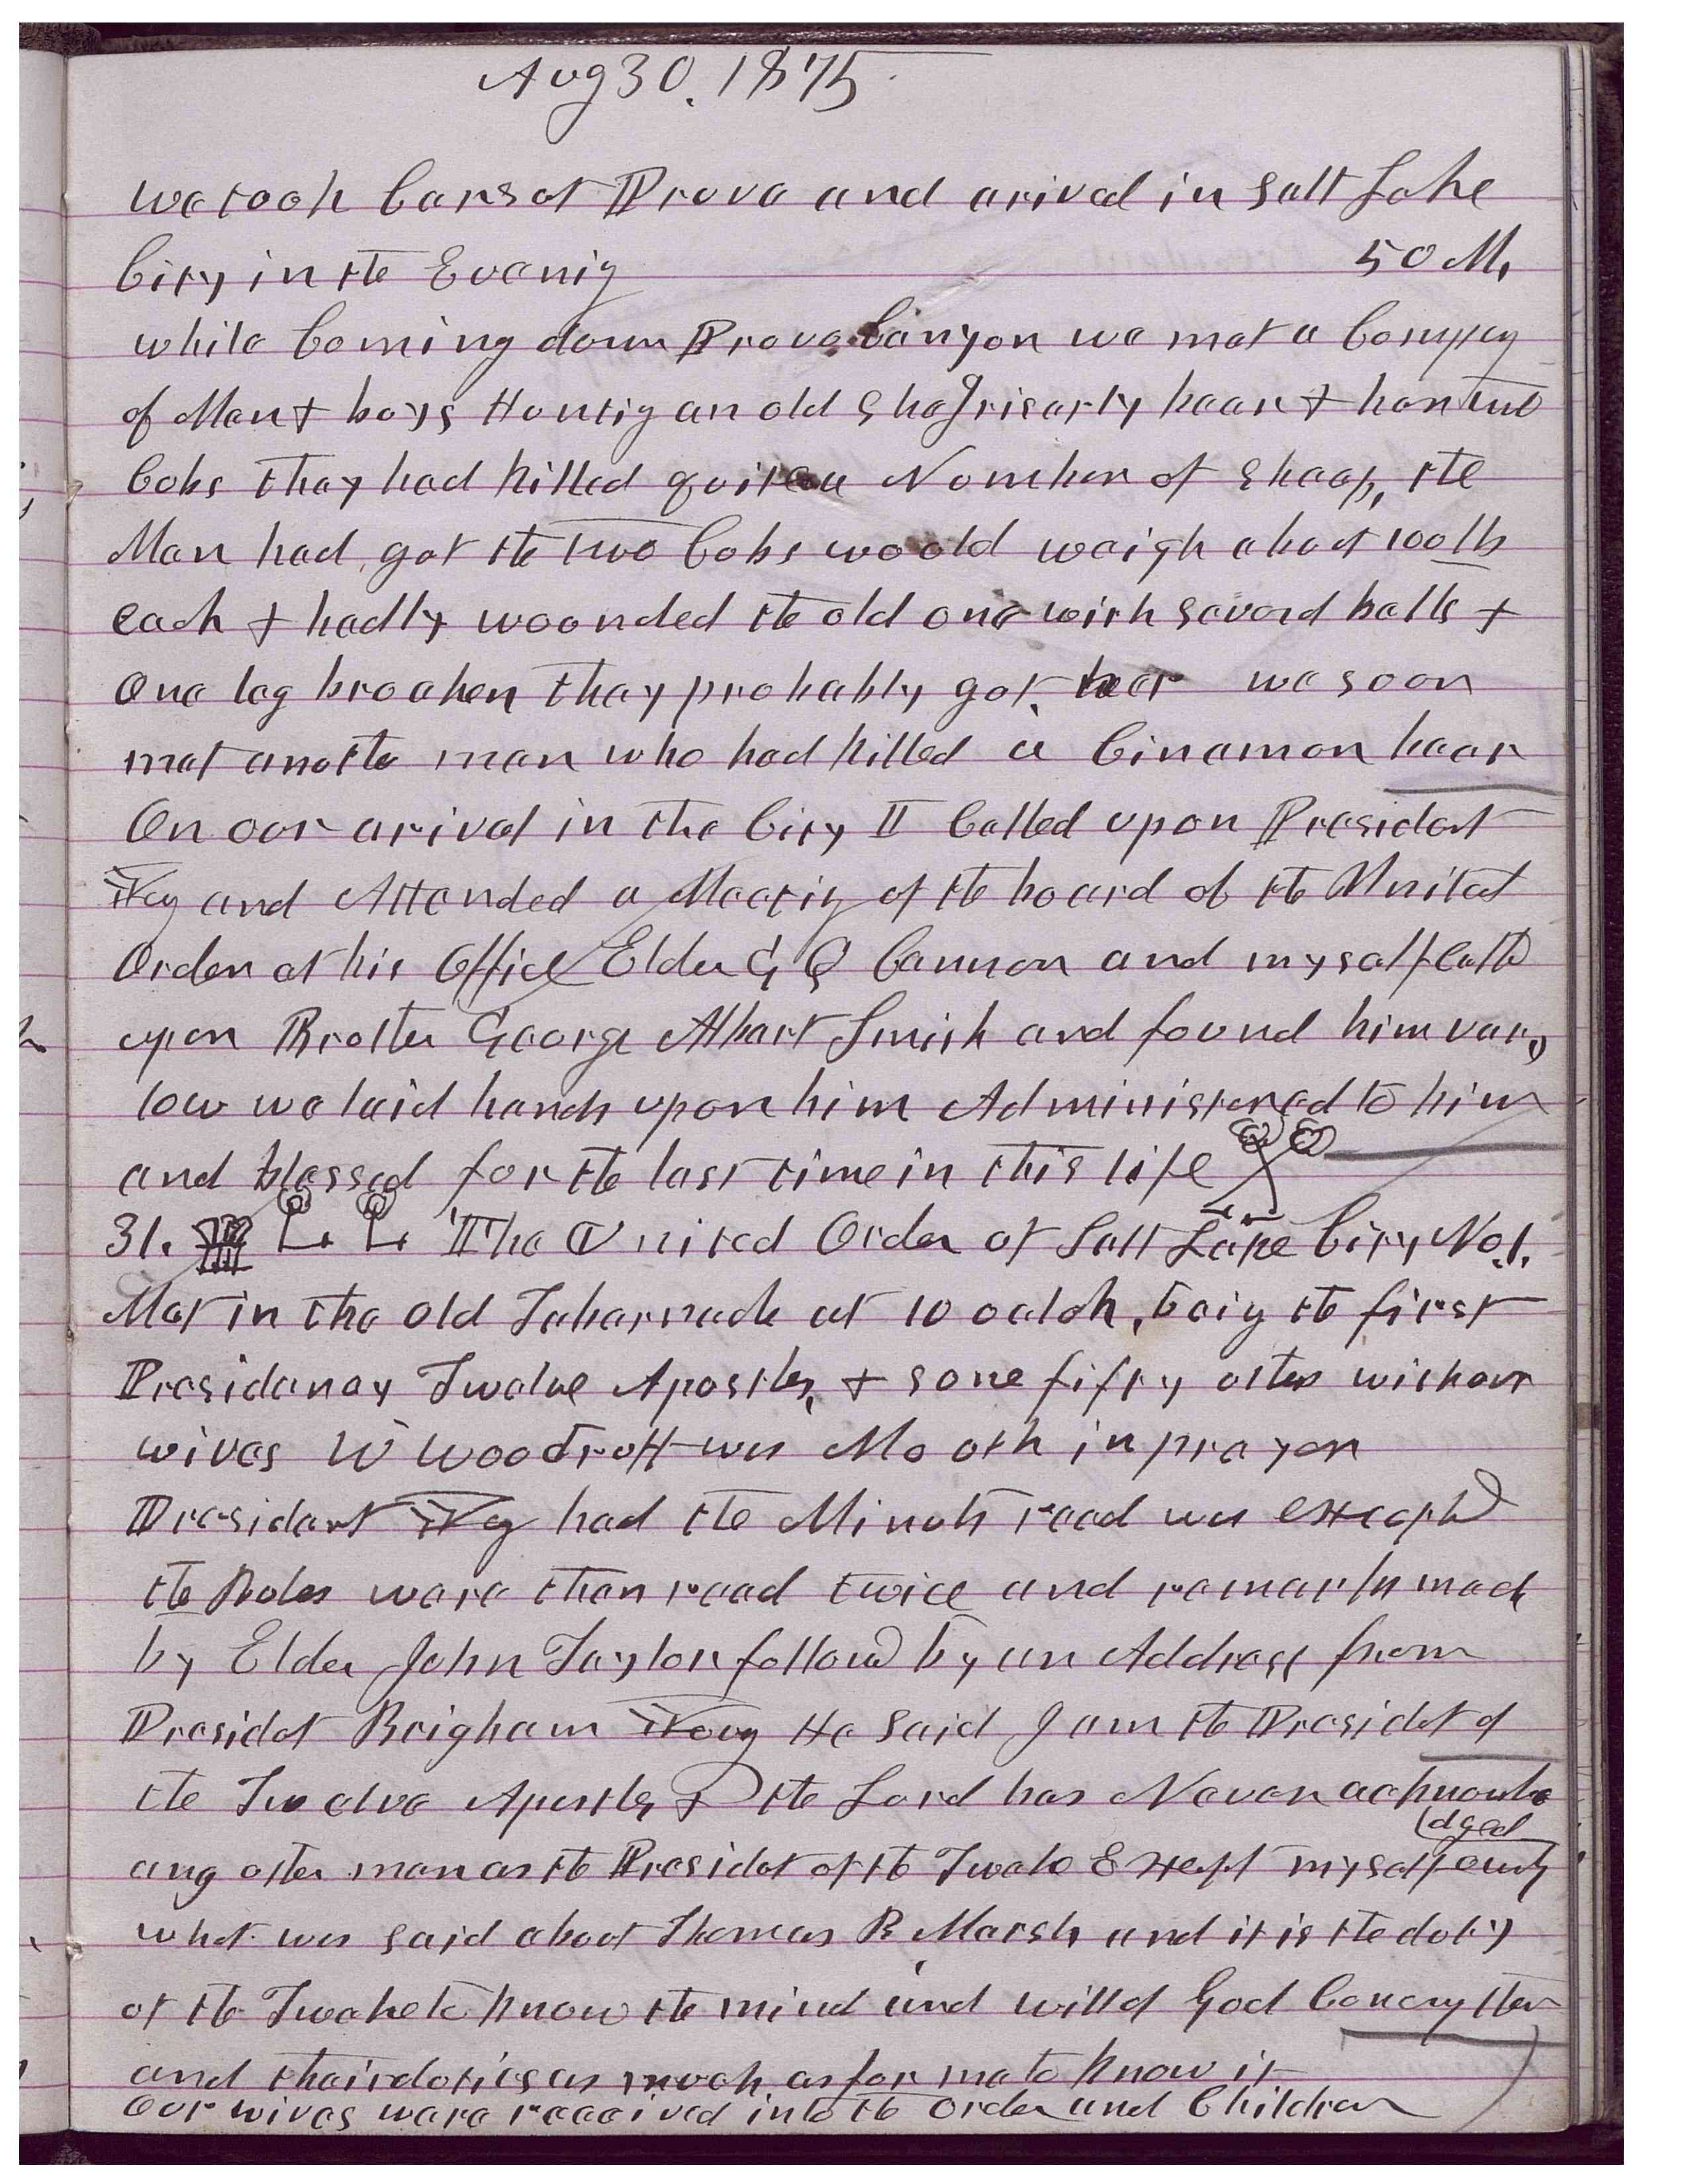 Aug 30. 1875
we took Cars at Provo and arived in Salt Lake
City in the Evenig 50 M,
while Coming down Provo Canyon we met a Compay
of Men & boys Huntig an old She Griserly bear & her two
Cubs they had killed quite a Number of Sheep, the
Men had got the two Cubs would weigh about 100 lb
each & badly wounded the old one with several balls &
One leg broaken they probably got her we soon
met anothe man who had killed a Cinamon bear
On our arival in the City I Called upon Presidet
Yg and Attended a Meetig of the board of the United
Order at his Office Elder G Q Cannon and myself Calld
upon Brother George Albert Smith and found him very
low we laid hands upon him Administered to him
and blessed for the last time in this life
31. The United Order of Salt Lake City No. 1.
Met in the Old Tabernacle at 10 oclok, beig the first
Presidency Twelve Apostles, & some fifty others with our
wives W Woodruff was Mouth in prayer
President Yg had the Minuts read was exceptd
the Rules were then read twice and remarks made
by Elder John Taylor followd by an Address from
Presidet Brigham Young He said I am the Presidet of
the Twelve Apostles & the Lord has Never acknowle
dged
any other man as the Presidet of the Twelve Except myself ownly
what was said about Thomas B, Marsh and it is the duty
of the Twelve to know the mind and will of God Concerng ther
and their duties as much as for me to know it
Our wives were received into the Order and Children